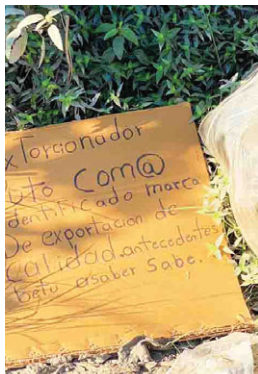 xTorcionador
bto Com@
dentificado marca
De exportacion de
Calidad.antecedentes
betu asaber Sabe.